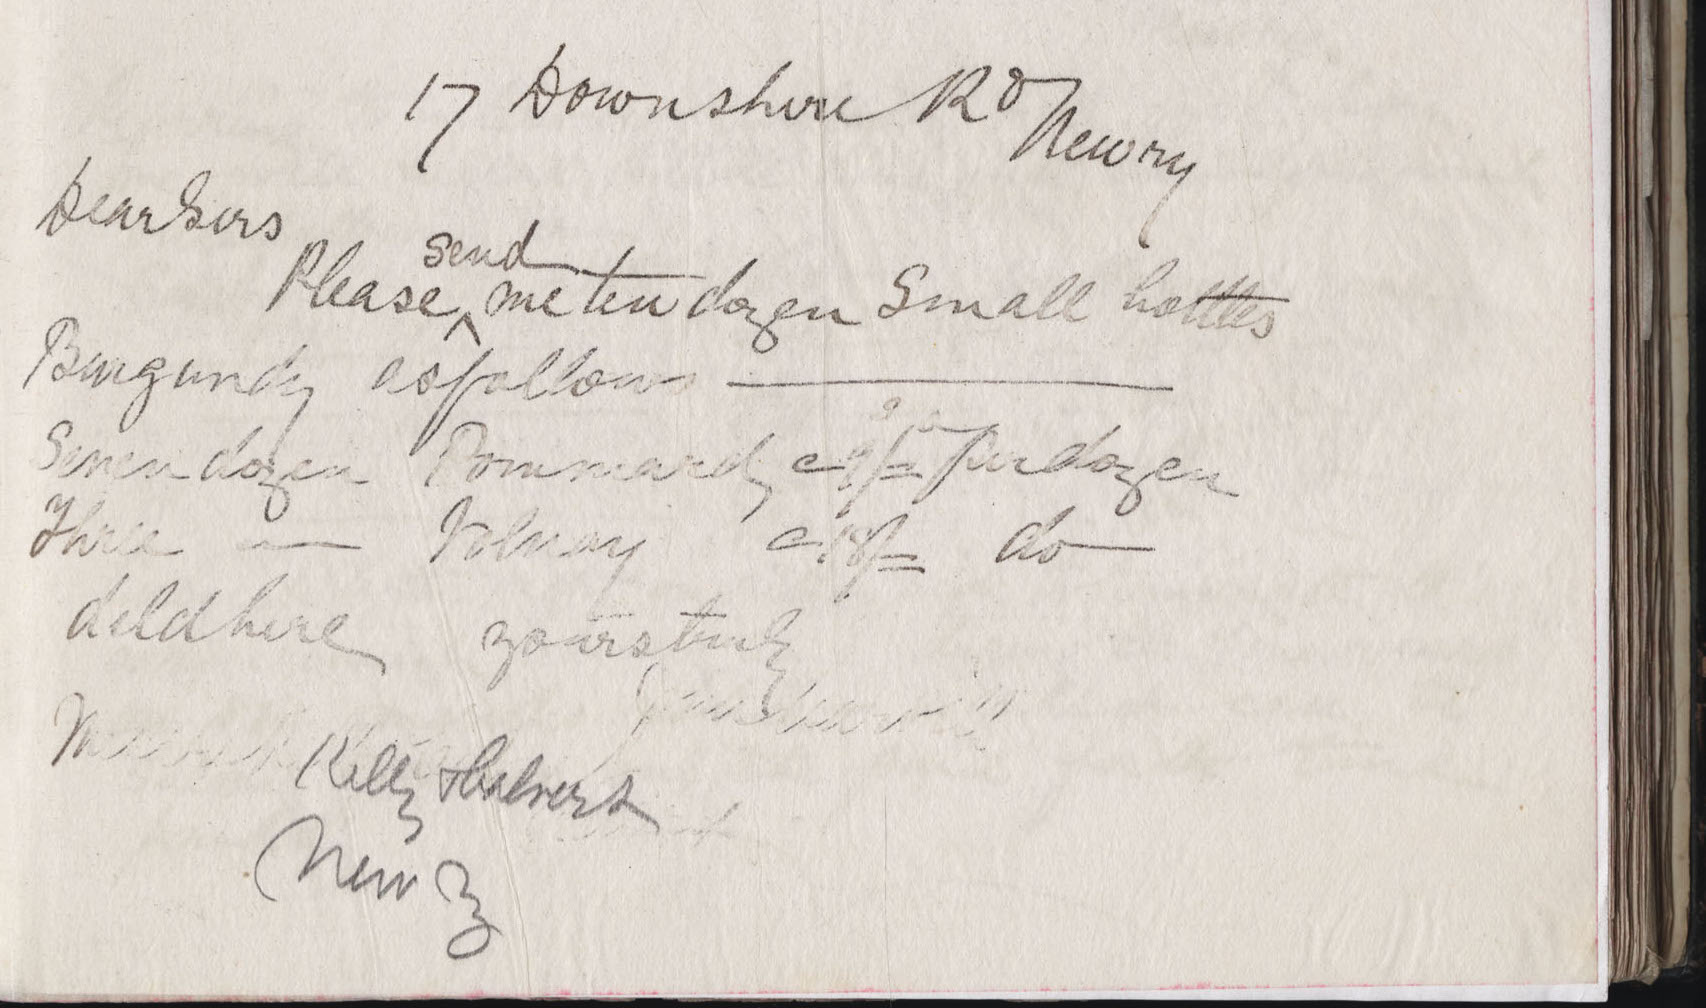 17 Downshire Rd
Newry
Dear Sirs
Please send me ten dozen Small bottles
Burgundy as follows
Seven dozen Pommard, @ 9/= per dozen
Three — Volnay @ 18/= do
deld here yours truly
Kelly & Calvert
Newry